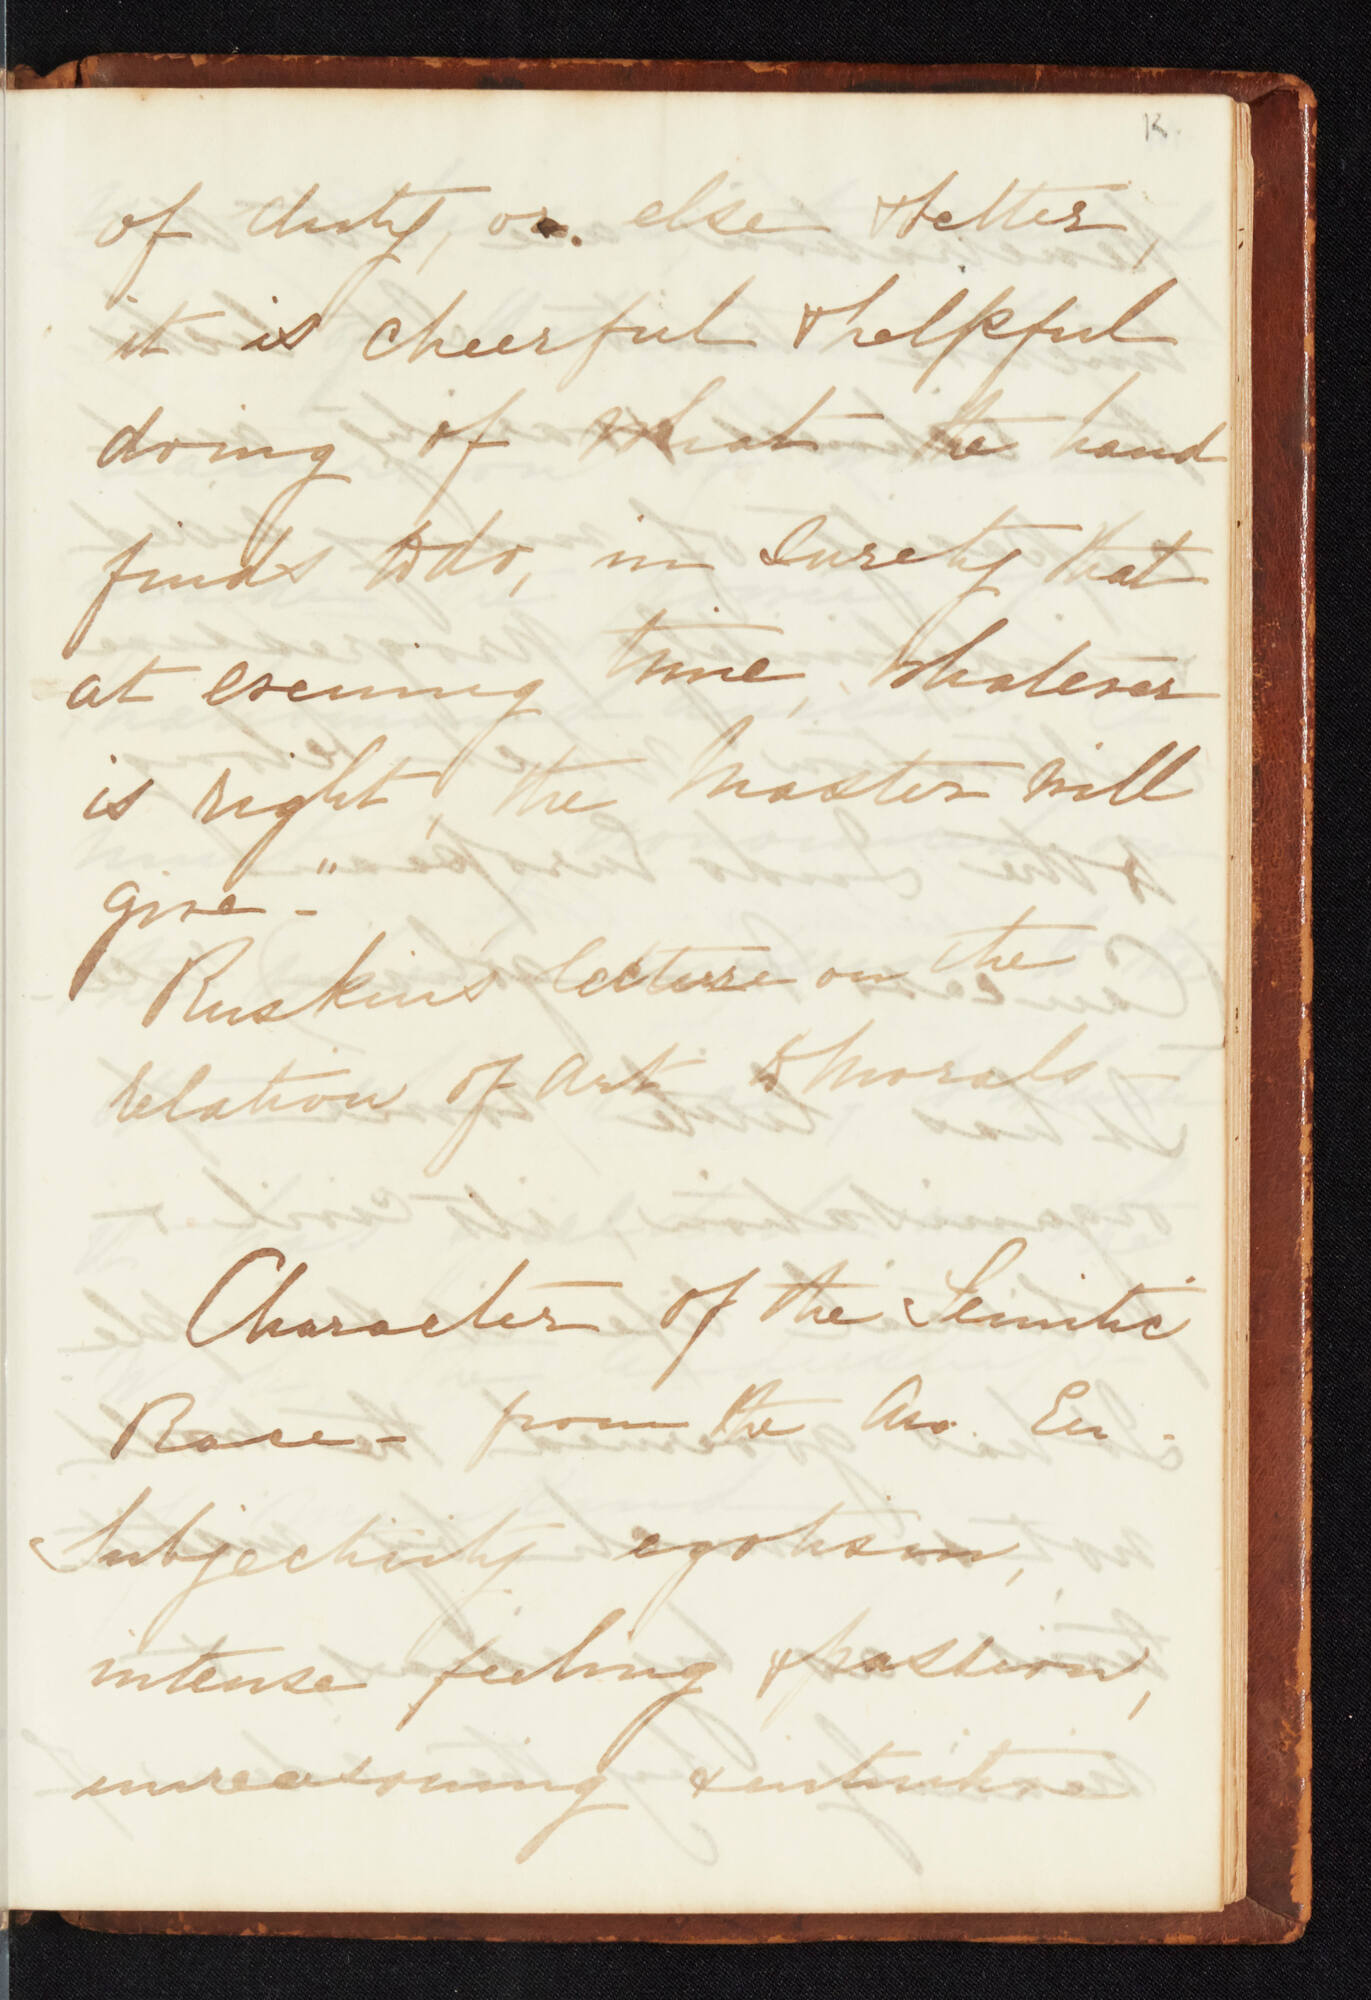 R.
of duty, or. else & better,
it is cheerful & helpful
doing of what the hand
finds to do, in surety that
at evening time, whatever
is right, the Master will
give -"
Ruskin's lecture on the
relation of art & Morals -
Character of the Semitic
Race - from the Am. En.
Subjectivity, egotism,
intense feeling & passion,
unreasoning & intuitive